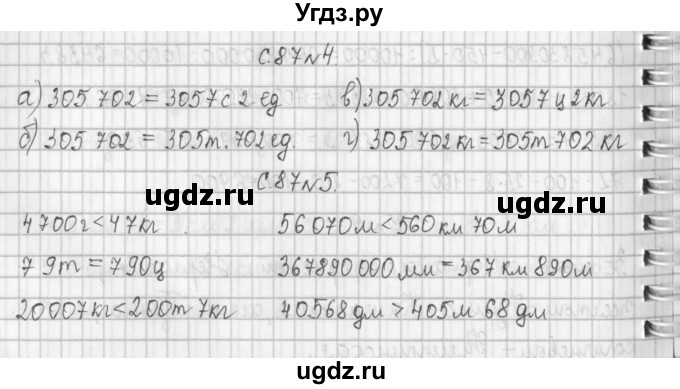 Угдз.ру
с.87 №4
а) 305 702 = 3057с 2 ед. в) 305 702 кг = 3057 ц 2 кг
б) 305 702 = 305т. 702 ед. г) 305 702 кг = 305т 702 кг
ugdz.ru ugdz.ru
с.87 №5.
4700г < 47кг 56070м < 560 км 70м
79т = 790ц 367890 000 мм = 367 км 890м
20007кг < 200т 7кг 40568 дм > 405м 68 дм
ugdz.ru ugdz.ru